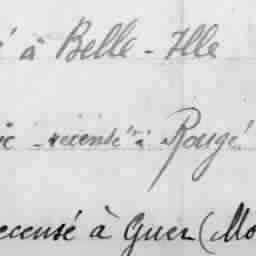 é à Belle-Ille
ic - recensé à Rougé
recensé à Guer (Mo